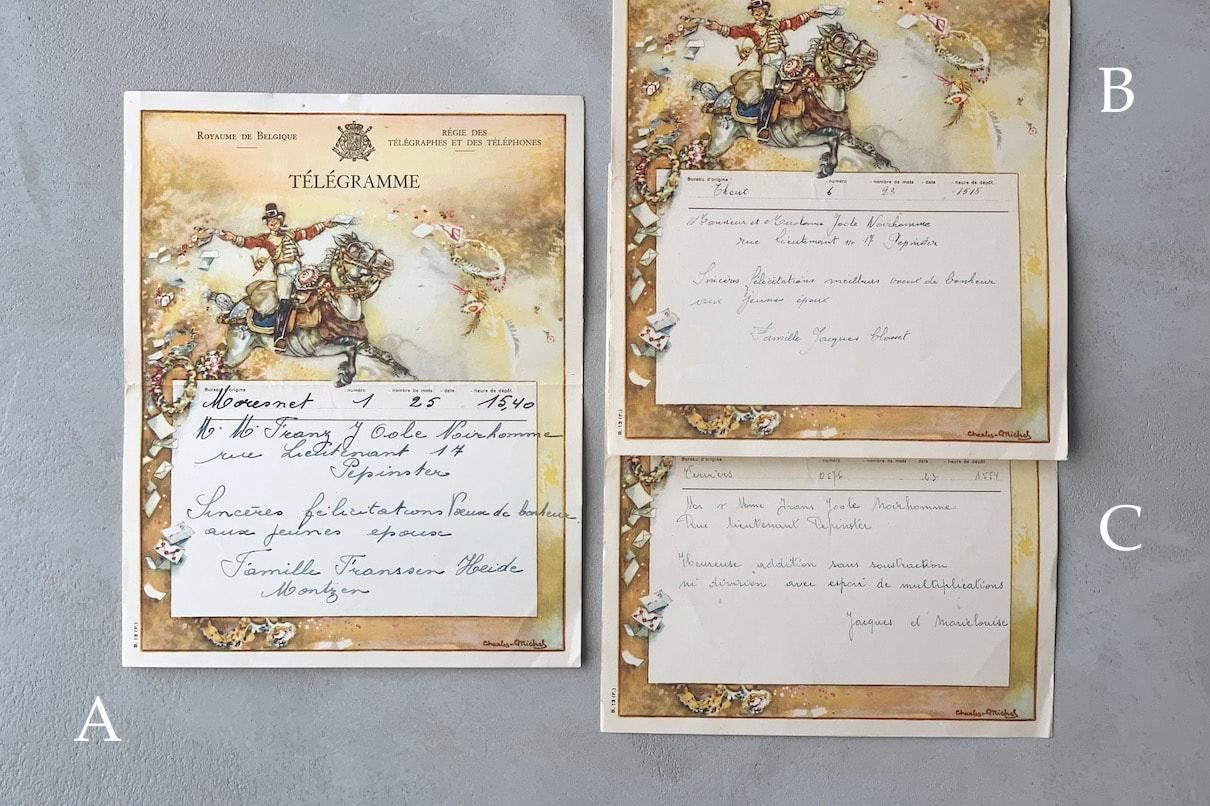 ROYAUME DE BELGIQUE
RÉGIE DES
TÉLÉGRAPHES ET DES TÉLÉPHONES
TÉLÉGRAMME
Bureau d'origine numéro nombre de mots date heure de dépôt.
Moresnet 1 25 15,40
M. M Franz J Oole Noirhomme
rue Lieutenant 17
Pepinster
Sincères félicitations Voeux de bonheur
aux jeunes epoux
Famille Franssen Heide
Montzen
B. 13 (F.)
Charles-Michel
A
Bureau d'origine numéro nombre de mots date heure de dépôt.
Theux 6 1515
Monsieur et Madame Joole Noirhomme
rue Lieutenant no 17 Pepinster
Sincères félicitations meilleurs voeux de bonheur
aux jeunes époux
Famille Jacques Closset
B. 13 (F.)
Charles-Michel
B
Bureau d'origine numéro nombre de mots date heure de dépôt.
Verviers 23
Mr & Mme Frans Joole Noirhomme
Rue lieutenant Pepinster
Heureuse addition sans soustraction
ni division avec espoir de multiplications
Jacques et Marielouise
B. 13 (F.)
Charles-Michel
C